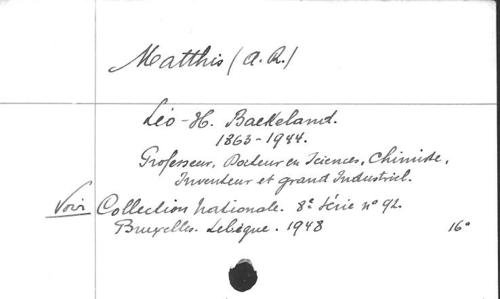 Matthis (A. R.)
Léo-H. Baekeland.
1863-1944.
Professeur, Docteur en Sciences, Chimiste,
Inventeur et grand Industriel.
Voir Collection Nationale. 8e Série n° 92.
Bruxelles. Lebègue. 1948 16°